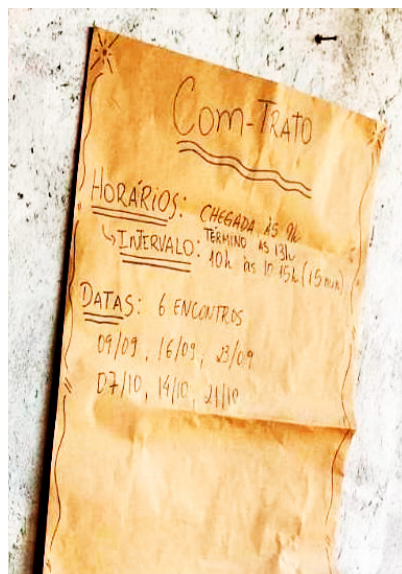 COM-TRATO
HORÁRIOS: CHEGADA ÀS 9h
TÉRMINO ÀS 13h
↳ INTERVALO: 10h às 10:15h (15 min)
DATAS: 6 ENCONTROS
09/09, 16/09, 23/09
07/10, 14/10, 21/10